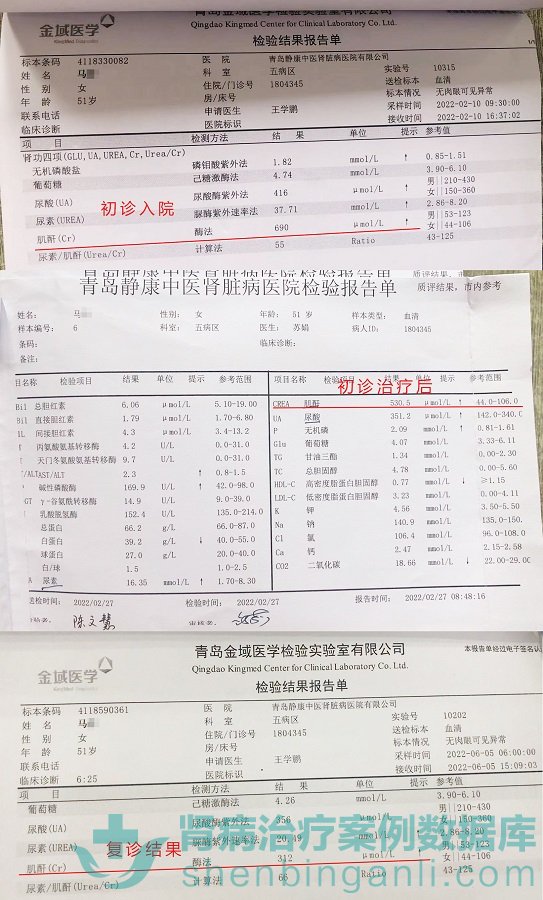 金域医学
KingMed Diagnostics
青岛金域医学检验实验室有限公司
Qingdao Kingmed Center for Clinical Laboratory Co. Ltd.
检验结果报告单
标本条码 4118330082 医 院 青岛静康中医肾脏病医院有限公司
姓 名 马 科 室 五病区 实验号 10315
性 别 女 住院/门诊号 1804345 送检标本 血清
年 龄 51岁 房/床号 标本情况 无肉眼可见异常
联系电话 申请医生 王学鹏 采样时间 2022-02-10 09:30:00
临床诊断 医院标识 接收时间 2022-02-10 16:37:02
项 目 检测方法 结 果 单位 提示 参考值
肾功四项(GLU,UA,UREA,Cr,Urea/Cr)
无机磷酸盐 磷钼酸紫外法 1.82 mmol/L ↑ 0.85-1.51
葡萄糖 己糖激酶法 4.74 mmol/L 3.90-6.10
尿酸(UA) 尿酸酶紫外法 416 μmol/L ↑ 男||210-430
女||150-360
尿素(UREA) 脲酶紫外速率法 37.71 mmol/L ↑ 2.86-8.20
肌酐(Cr) 酶法 690 μmol/L ↑ 男||53-123
女||44-106
尿素/肌酐(Urea/Cr) 计算法 55 Ratio 43-125
初诊入院
青岛静康中医肾脏病医院检验报告单
质评结果，市内参考
姓名: 马 性别: 女 年龄: 51 岁 样本类型: 血清
样本编号: 6 科室: 五病区 医生: 苏娟 病人ID: 1804345
条码: 临床诊断:
备注:
目名称 检验项目 结果 单位 提示 参考范围 项目名称 检验项目 结果 单位 提示 参考范围
初诊治疗后
Bil 总胆红素 6.06 μmol/L 5.10-19.00 CREA 肌酐 530.5 μmol/L ↑ 44.0-106.0
Bil 直接胆红素 1.79 μmol/L 1.70-6.80 UA 尿酸 351.2 μmol/L ↑ 142.0-340.0
IL 间接胆红素 4.3 μmol/L 3.4-13.2 P 无机磷 2.09 mmol/L ↑ 0.81-1.61
丙氨酸氨基转移酶 4.2 U/L 0.0-31.0 Glu 葡萄糖 4.07 mmol/L 3.33-6.11
天门冬氨酸氨基转移酶 9.7 U/L 0.0-31.0 TG 甘油三酯 1.34 mmol/L 0.00-2.30
/ALT AST/ALT 2.3 ↑ 0.8-1.5 TC 总胆固醇 4.78 mmol/L 0.00-5.60
碱性磷酸酶 169.9 U/L ↑ 42.0-98.0 HDL-C 高密度脂蛋白胆固醇 0.77 mmol/L ↓ ≥1.15
GT γ-谷氨酰转移酶 14.9 U/L 9.0-39.0 LDL-C 低密度脂蛋白胆固醇 3.23 mmol/L 0.00-4.11
乳酸脱氢酶 152.4 U/L 135.0-214.0 K 钾 4.56 mmol/L 3.50-5.50
总蛋白 66.2 g/L 66.0-87.0 Na 钠 140.9 mmol/L 135.0-150.
白蛋白 39.2 g/L ↓ 40.0-55.0 Cl 氯 106.4 mmol/L 96.0-108.0
球蛋白 27.0 g/L 20.0-40.0 Ca 钙 2.47 mmol/L 2.15-2.58
白/球 1.5 1.0-2.5 CO2 二氧化碳 18.66 mmol/L ↓ 22.00-29.00
尿素 16.35 mmol/L ↑ 1.70-8.30
送检时间: 2022/02/27 检验时间: 2022/02/27 报告时间: 2022/02/27 08:48:16
陈文慧 审核者:
青岛金域医学检验实验室有限公司
本报告单经过电子签名认
金域医学
KingMed Diagnostics
Qingdao Kingmed Center for Clinical Laboratory Co. Ltd.
检验结果报告单
标本条码 4118590361 医 院 青岛静康中医肾脏病医院有限公司
姓 名 马 科 室 五病区 实验号 10202
性 别 女 住院/门诊号 1804345 送检标本 血清
年 龄 51岁 房/床号 标本情况 无肉眼可见异常
联系电话 申请医生 王学鹏 采样时间 2022-06-05 06:00:00
临床诊断 6:25 医院标识 接收时间 2022-06-05 15:09:03
项 目 检测方法 结 果 单位 提示 参考值
葡萄糖 己糖激酶法 4.26 mmol/L 3.90-6.10
尿酸(UA) 尿酸酶紫外法 356 μmol/L 男||210-430
女||150-360
尿素(UREA) 脲酶紫外速率法 20.49 mmol/L ↑ 2.86-8.20
肌酐(Cr) 酶法 312 μmol/L ↑ 男||53-123
女||44-106
尿素/肌酐(Urea/Cr) 计算法 66 Ratio 43-125
复诊结果
肾病治疗案例数据库
shenbinganli.com